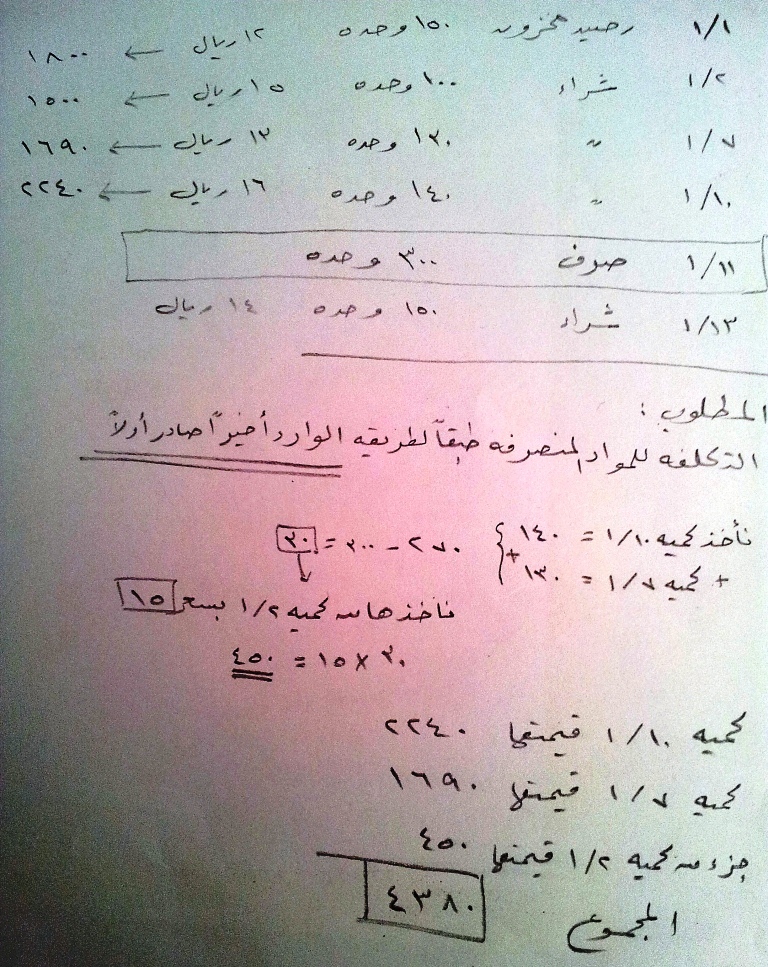 ١/١ رصيد مخزون ١٥٠ وحده ١٢ ريال ← ١٨٠٠
١/٢ شراء ١٠٠ وحده ١٥ ريال ← ١٥٠٠
١/٧ " ١٣٠ وحده ١٣ ريال ← ١٦٩٠
١/١٠ " ١٤٠ وحده ١٦ ريال ← ٢٢٤٠
١/١١ صرف ٣٠٠ وحده
١/١٣ شراء ١٥٠ وحده ١٤ ريال
المطلوب :
التكلفه للمواد المنصرفه طبقاً لطريقه الوارد أخيراً صادر أولاً
نأخذ كميه ١/١٠ = ١٤٠
+ كميه ١/٧ = ١٣٠ + ٢٧٠ - ٣٠٠ = ٣٠
نأخذها من كميه ١/٢ بسعر ١٥
٣٠ × ١٥ = ٤٥٠
كميه ١/١٠ قيمتها ٢٢٤٠
كميه ١/٧ قيمتها ١٦٩٠
جزء من كميه ١/٢ قيمتها ٤٥٠
المجموع ٤٣٨٠